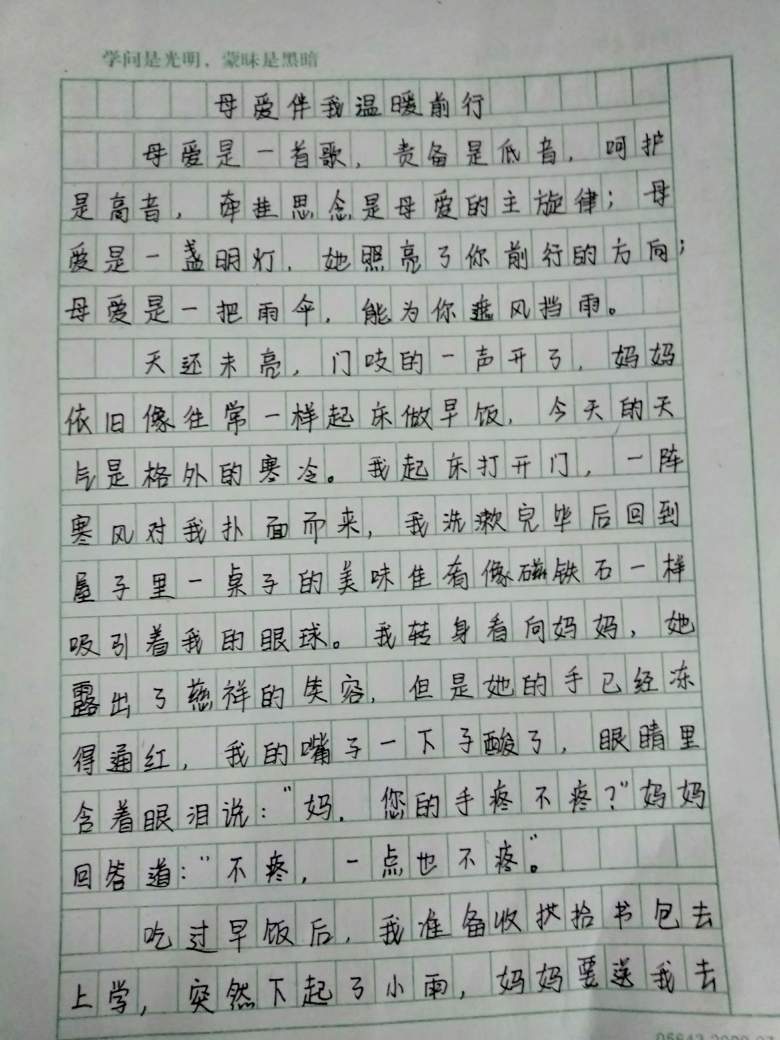 学问是光明，蒙昧是黑暗
母爱伴我温暖前行
母爱是一首歌，责备是低音，呵护
是高音，牵挂思念是母爱的主旋律；母
爱是一盏明灯，她照亮了你前行的方向；
母爱是一把雨伞，能为你遮风挡雨。
天还未亮，门吱的一声开了，妈妈
依旧像往常一样起床做早饭，今天的天
气是格外的寒冷。我起床打开门，一阵
寒风对我扑面而来，我洗漱完毕后回到
屋子里一桌子的美味佳肴像磁铁石一样
吸引着我的眼球。我转身看向妈妈，她
露出了慈祥的笑容，但是她的手已经冻
得通红，我的嘴子一下子酸了，眼睛里
含着眼泪说："妈，您的手疼不疼？"妈妈
回答道："不疼，一点也不疼"。
吃过早饭后，我准备收拱拾书包去
上学，突然下起了小雨，妈妈要送我去